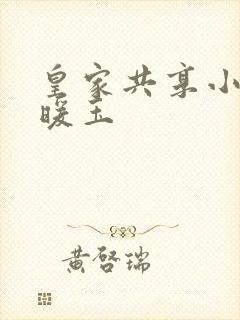 皇家共享小
暖玉
黄启瑞